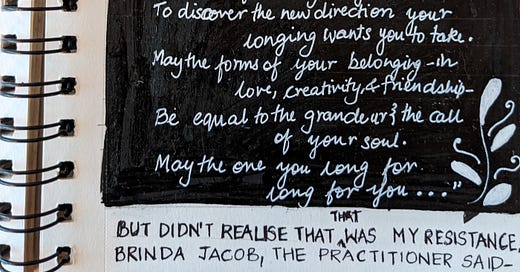 To discover the new direction your
longing wants you to take.
May the forms of your belonging -in
love, creativity & friendship-
Be equal to the grandeur & the call
of your soul.
May the one you long for
long for you ..."
BUT DIDN'T REALISE THAT THAT WAS MY RESISTANCE.
BRINDA JACOB, THE PRACTITIONER SAID-